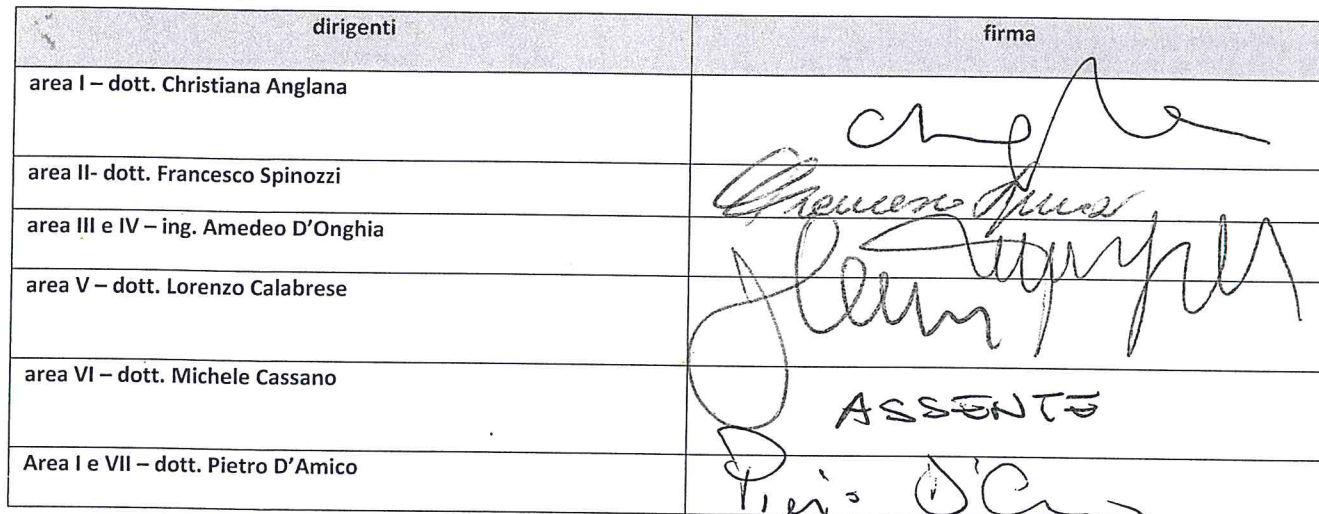 dirigenti firma
area I – dott. Christiana Anglana
area II- dott. Francesco Spinozzi
Francesco
area III e IV – ing. Amedeo D'Onghia
area V – dott. Lorenzo Calabrese
area VI – dott. Michele Cassano ASSENTE
Area I e VII – dott. Pietro D'Amico